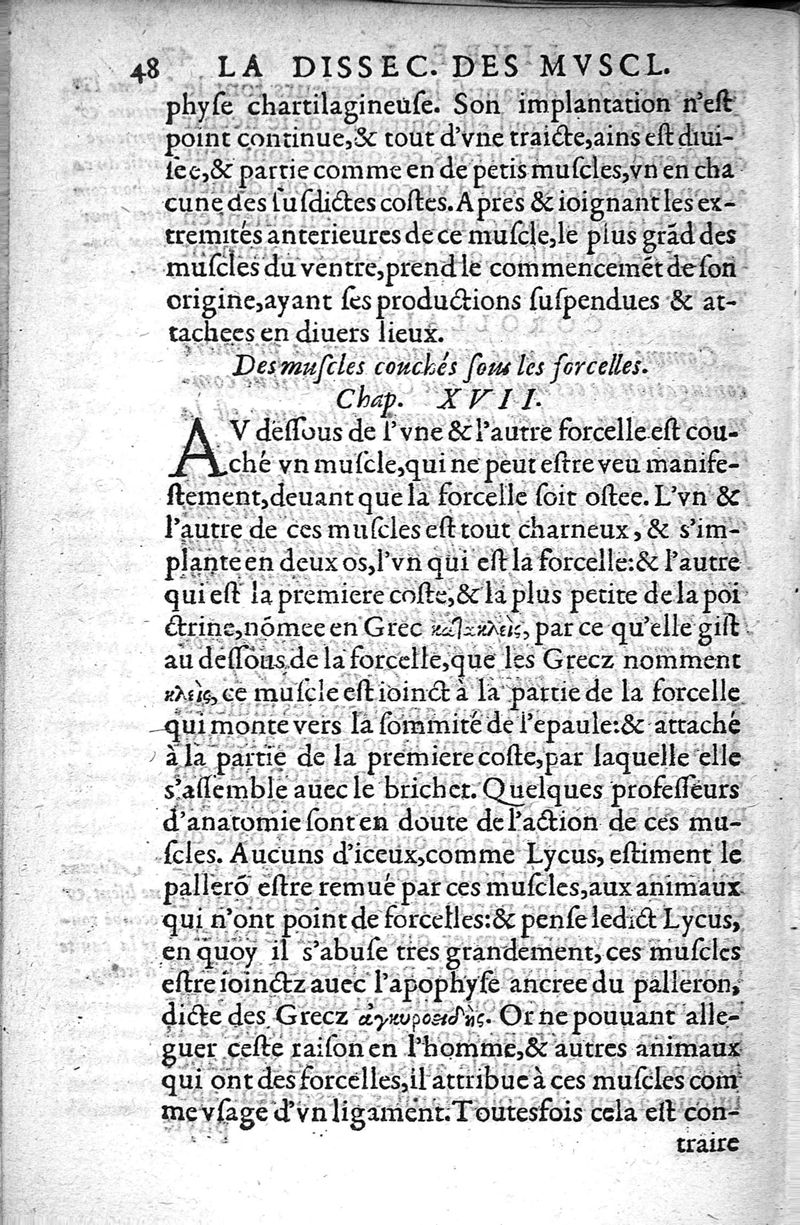 48 LA DISSEC. DES MVSCL.
physe chartilagineuse. Son implantation n'est
point continue,& tout d'vne traicte,ains est diui-
see,& partie comme en de petis muscles,vn en cha
cune des susdictes costes. Apres & ioignant les ex-
tremités anterieures de ce muscle,le plus grãd des
muscles du ventre,prend le commencemẽt de son
origine,ayant ses productions suspendues & at-
tachees en diuers lieux.
Des muscles couchés sous les forcelles.
Chap. XVII.
AV dessous de l'vne & l'autre forcelle est cou-
ché vn muscle,qui ne peut estre veu manife-
stement,deuant que la forcelle soit ostee. L'vn &
l'autre de ces muscles est tout charneux, & s'im-
plante en deux os,l'vn qui est la forcelle:& l'autre
qui est la premiere coste,& la plus petite de la poi
ctrine,nõmee en Grec κατακλεὶς, par ce qu'elle gist
au dessous de la forcelle,que les Grecz nomment
κλεὶς, ce muscle est ioinct à la partie de la forcelle
qui monte vers la sommité de l'epaule:& attaché
à la partie de la premiere coste,par laquelle elle
s'assemble auec le brichet. Quelques professeurs
d'anatomie sont en doute de l'action de ces mu-
scles. Aucuns d'iceux,comme Lycus, estiment le
pallerõ estre remué par ces muscles,aux animaux
qui n'ont point de forcelles:& pense ledict Lycus,
en quoy il s'abuse tres grandement, ces muscles
estre ioinctz auec l'apophyse ancree du palleron,
dicte des Grecz ἀγκυροειδὴς. Or ne pouuant alle-
guer ceste raison en l'homme,& autres animaux
qui ont des forcelles,il attribue à ces muscles com
me vsage d'vn ligament. Toutesfois cela est con-
traire